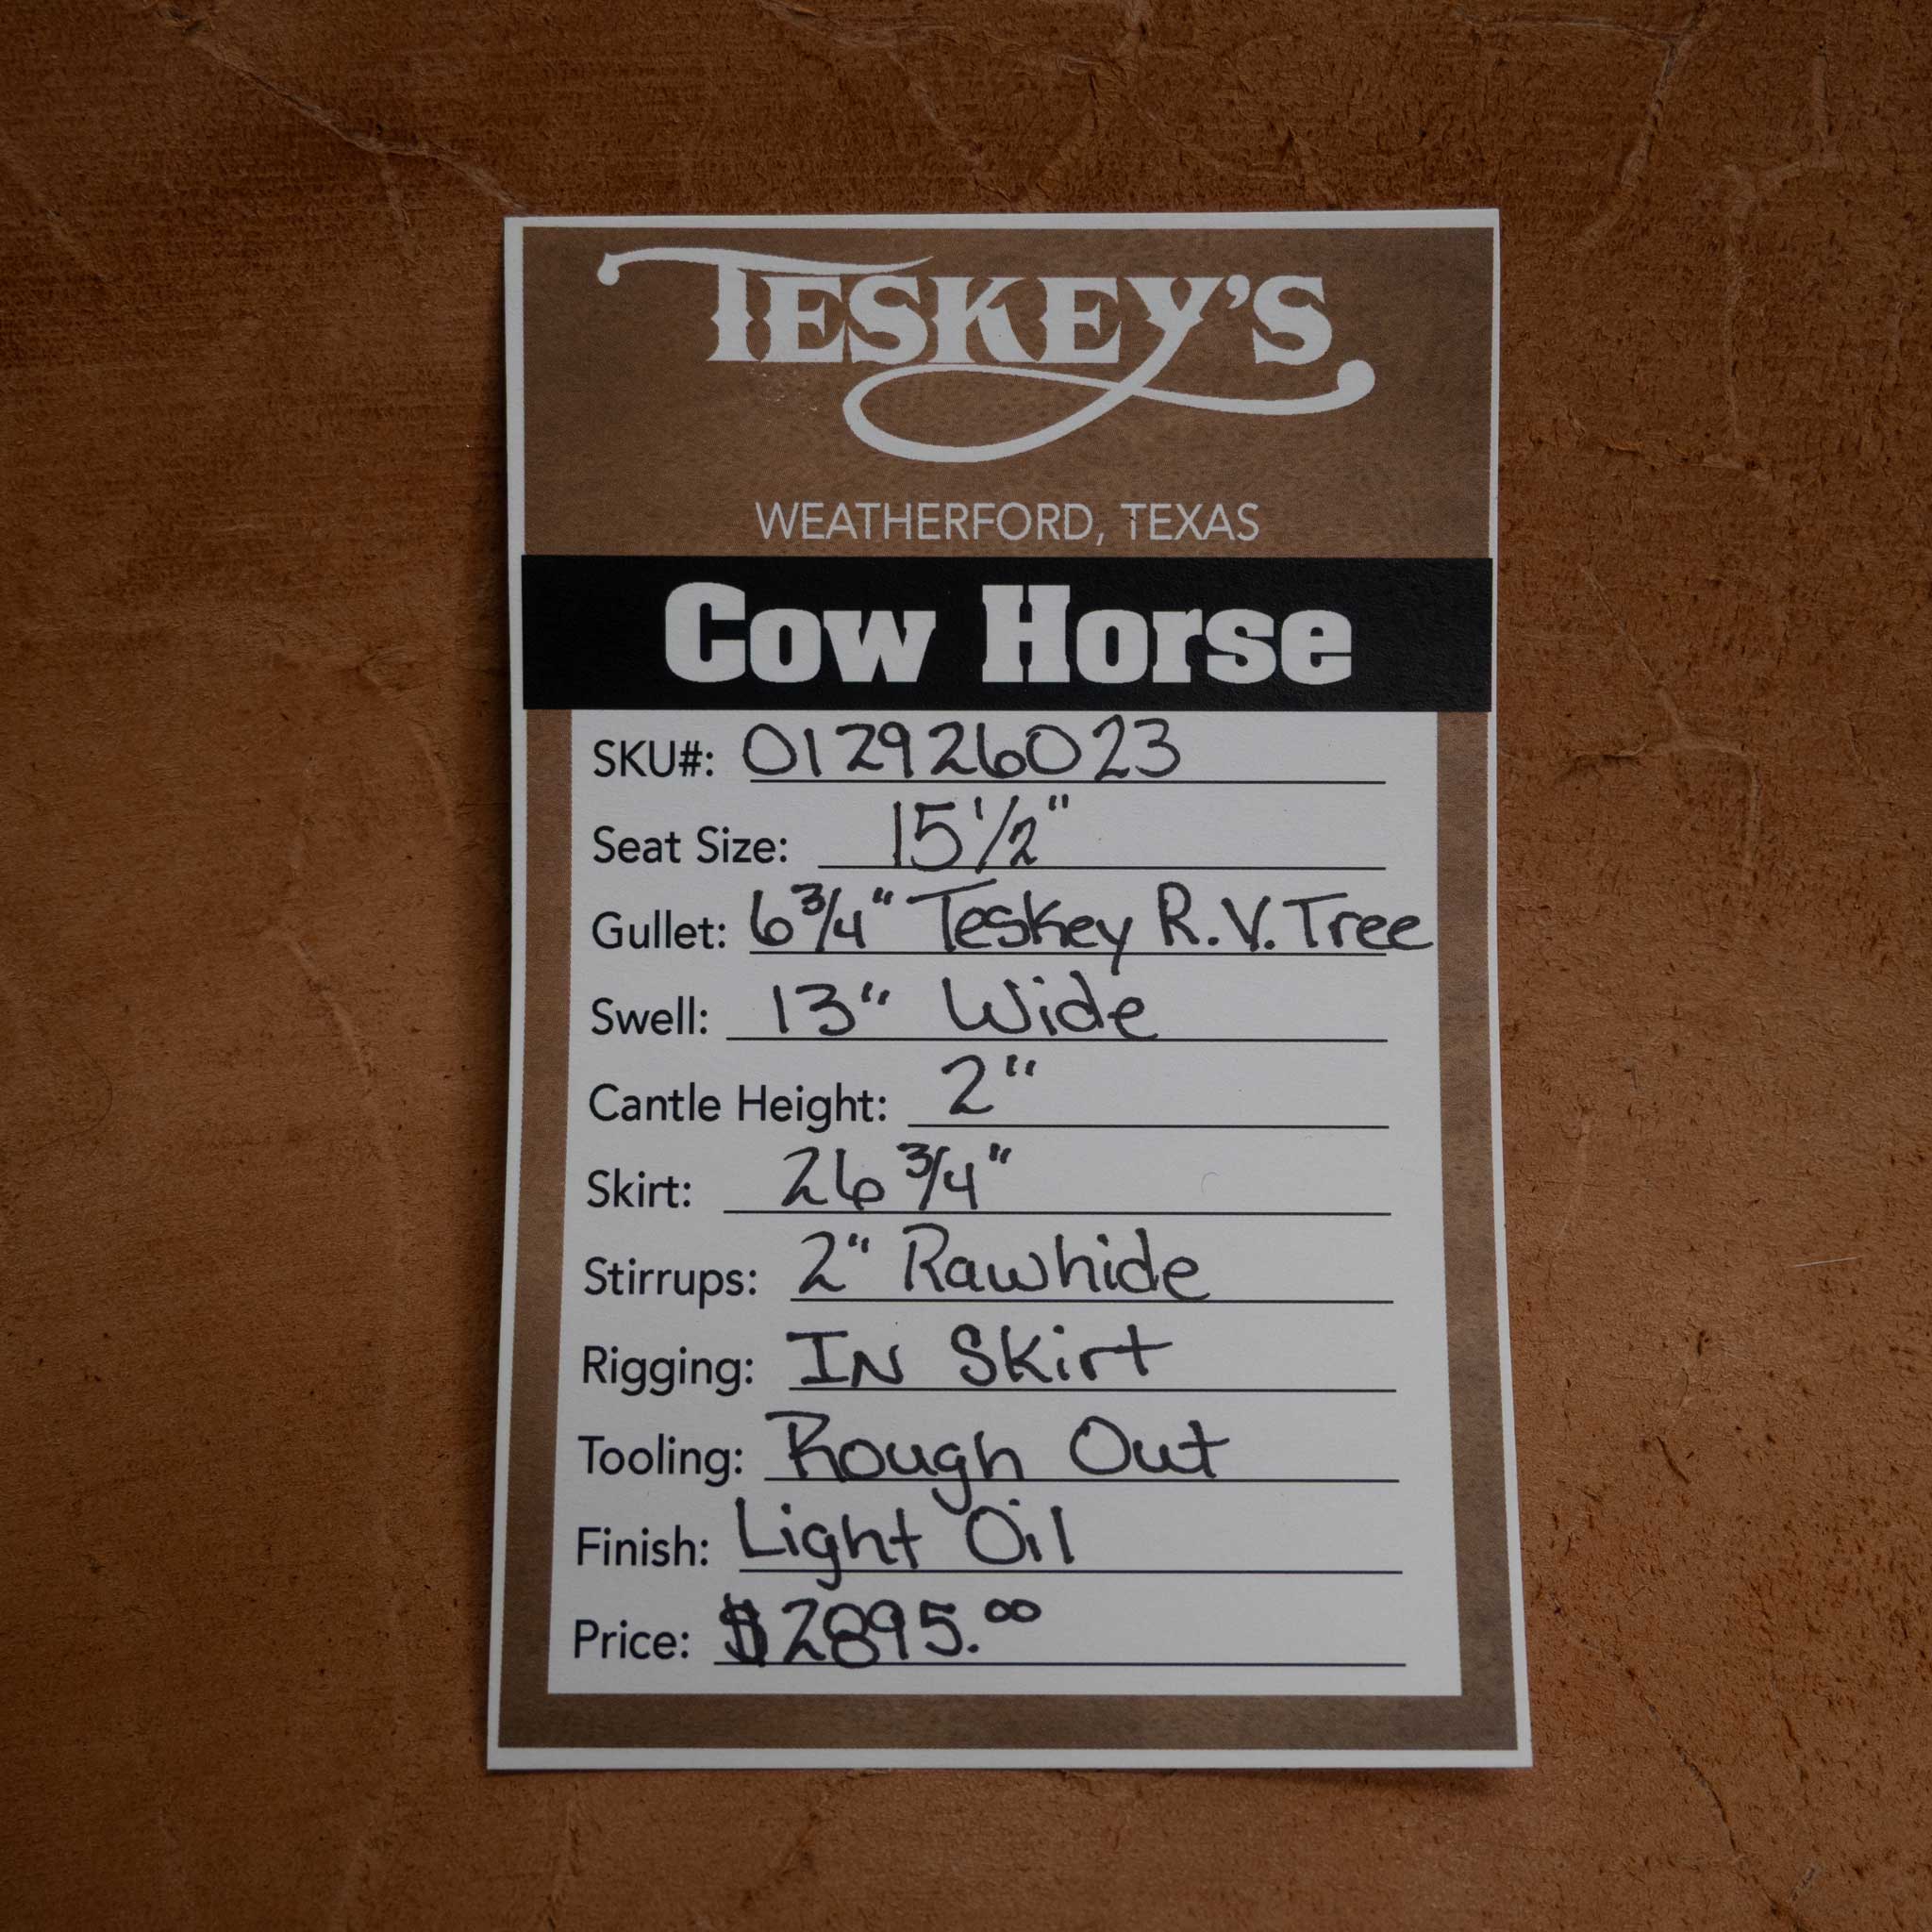 TESKEY'S
WEATHERFORD, TEXAS
Cow Horse
SKU#: 012926023
Seat Size: 15 1/2"
Gullet: 6 3/4" Teskey R.V. Tree
Swell: 13" Wide
Cantle Height: 2"
Skirt: 26 3/4"
Stirrups: 2" Rawhide
Rigging: IN Skirt
Tooling: Rough Out
Finish: Light Oil
Price: $2895.00